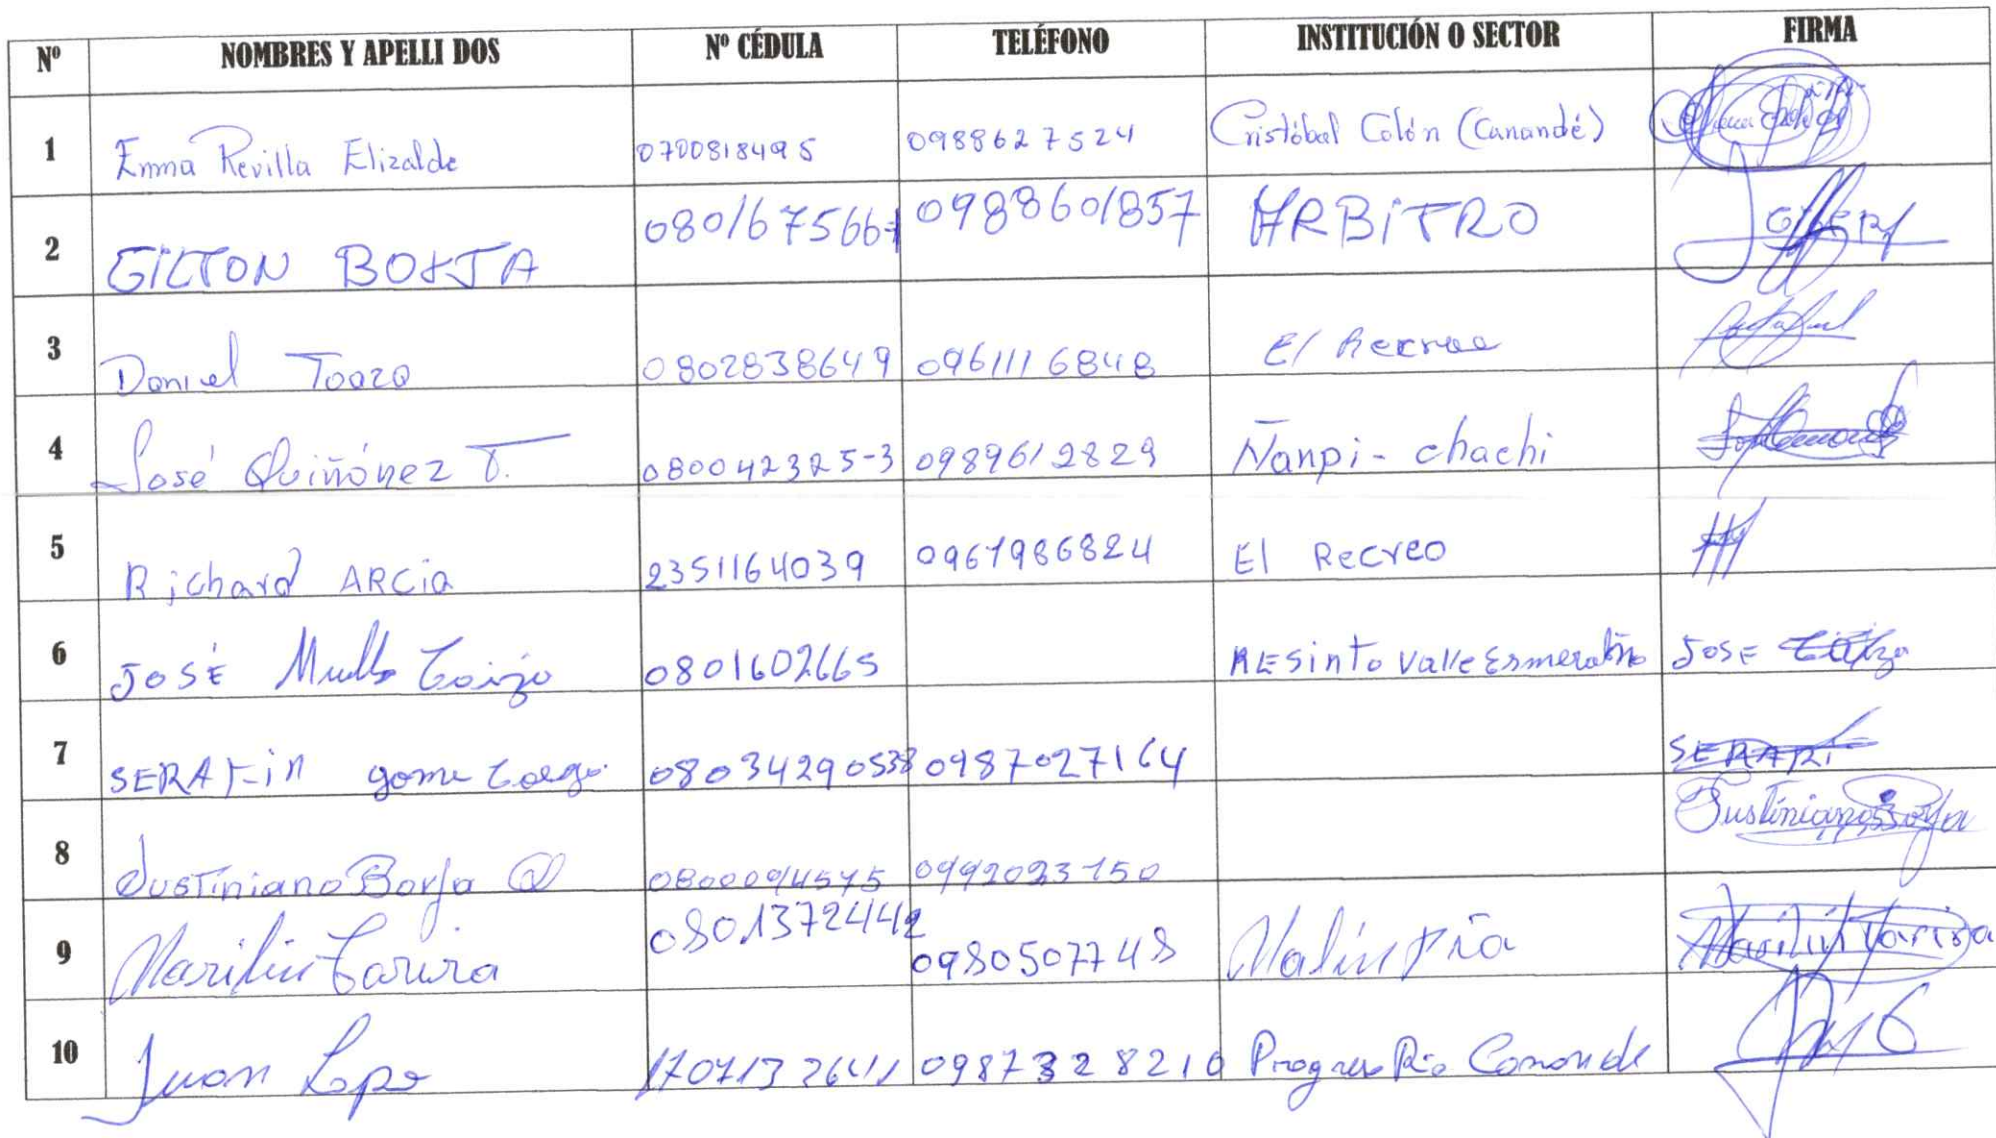 Nº NOMBRES Y APELLI DOS Nº CÉDULA TELÉFONO INSTITUCIÓN O SECTOR FIRMA
1 Emma Revilla Elizalde 0700818495 0988627524 Cristóbal Colón (Canandé)
2 GILTON BORJA 080167566 0988601857 ARBITRO
3 Daniel Toaza 0802838649 0961116848 El Recreo
4 José Quiñónez T. 080042325-3 0989612829 Ñanpi - chachi
5 Richard ARCia 2351164039 0967986824 El Recreo
6 JOSÉ 0801602665 RESinto Valle Esmeraldeño JOSE
7 SERAFin gome 0987027164 SERAFI
8 Justiniano Borja 0992023150 Justiniano Borja
9 Marilin Tarira 0801372442 0980507748 Marilin Tarira
10 Juan Lope 0987328210 Progreso Rio Canande